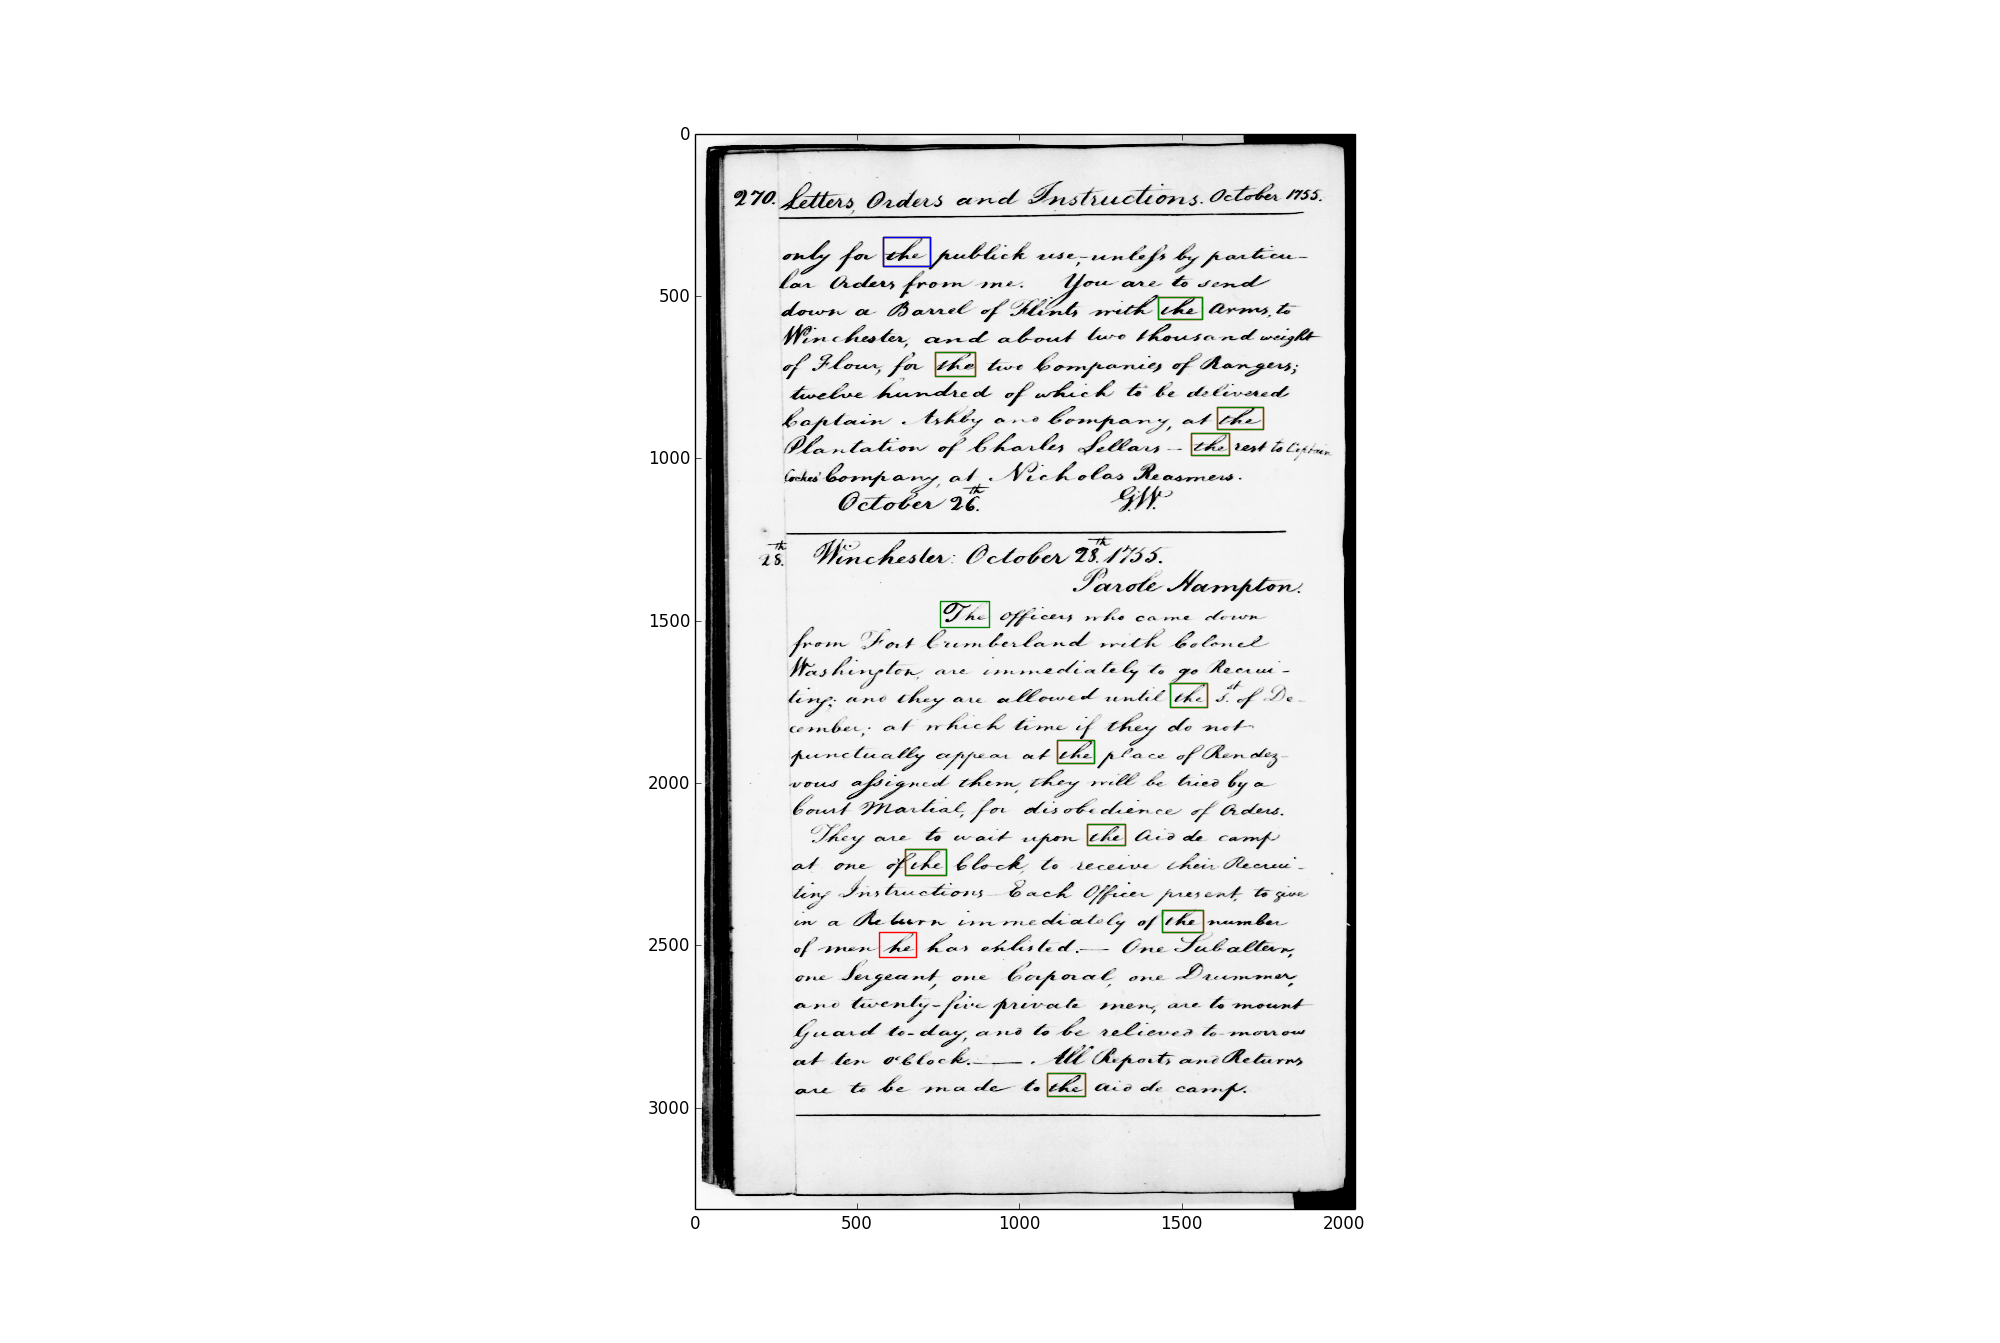 0
500
1000
1500
2000
2500
3000
0 500 1000 1500 2000
270. Letters, Orders and Instructions. October 1755.
only for the publick use,-unless by particu-
lar Orders from me. You are to send
down a Barrel of Flints with the Arms, to
Winchester, and about two thousand weight
of Flour, for the two Companies of Rangers;
twelve hundred of which to be delivered
Captain Ashby and Company, at the
Plantation of Charles Sellars - the rest to Captain
Cockes' Company, at Nicholas Reasmers.
October 26.th G.W.
28.th Winchester: October 28.th 1755.
Parole Hampton.
The Officers who came down
from Fort Cumberland with Colonel
Washington, are immediately to go Recrui-
ting; and they are allowed until the 1.st of De-
cember; at which time if they do not
punctually appear at the place of Rendez-
vous assigned them, they will be tried by a
Court Martial, for disobedience of Orders.
They are to wait upon the Aid de camp
at one of the Clock, to receive their Recrui-
ting Instructions Each Officer present, to give
in a Return immediately of the number
of men he has enlisted.— One Subaltern,
one Sergeant, one Corporal, one Drummer,
and twenty-five private men, are to mount
Guard to-day, and to be relieved to-morrow
at ten o'Clock.—. All Reports and Returns
are to be made to the Aid de camp.